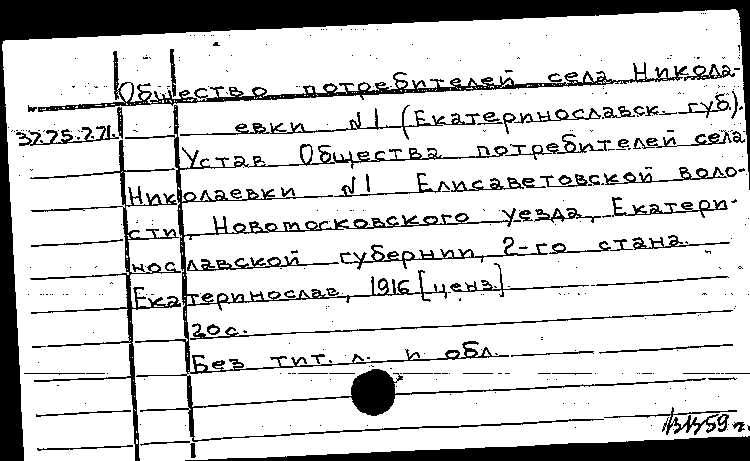 Общество потребителей села Никола-
37.75.771. евки №1 (Екатеринославск. губ.).
Устав Общества потребителей села
Николаевки №1 Елисаветовской воло-
сти, Новомосковского уезда, Екатери-
нославской губернии, 2-го стана.
Екатеринослав, 1916 [ценз.]
20с.
Без тит. л. и обл.